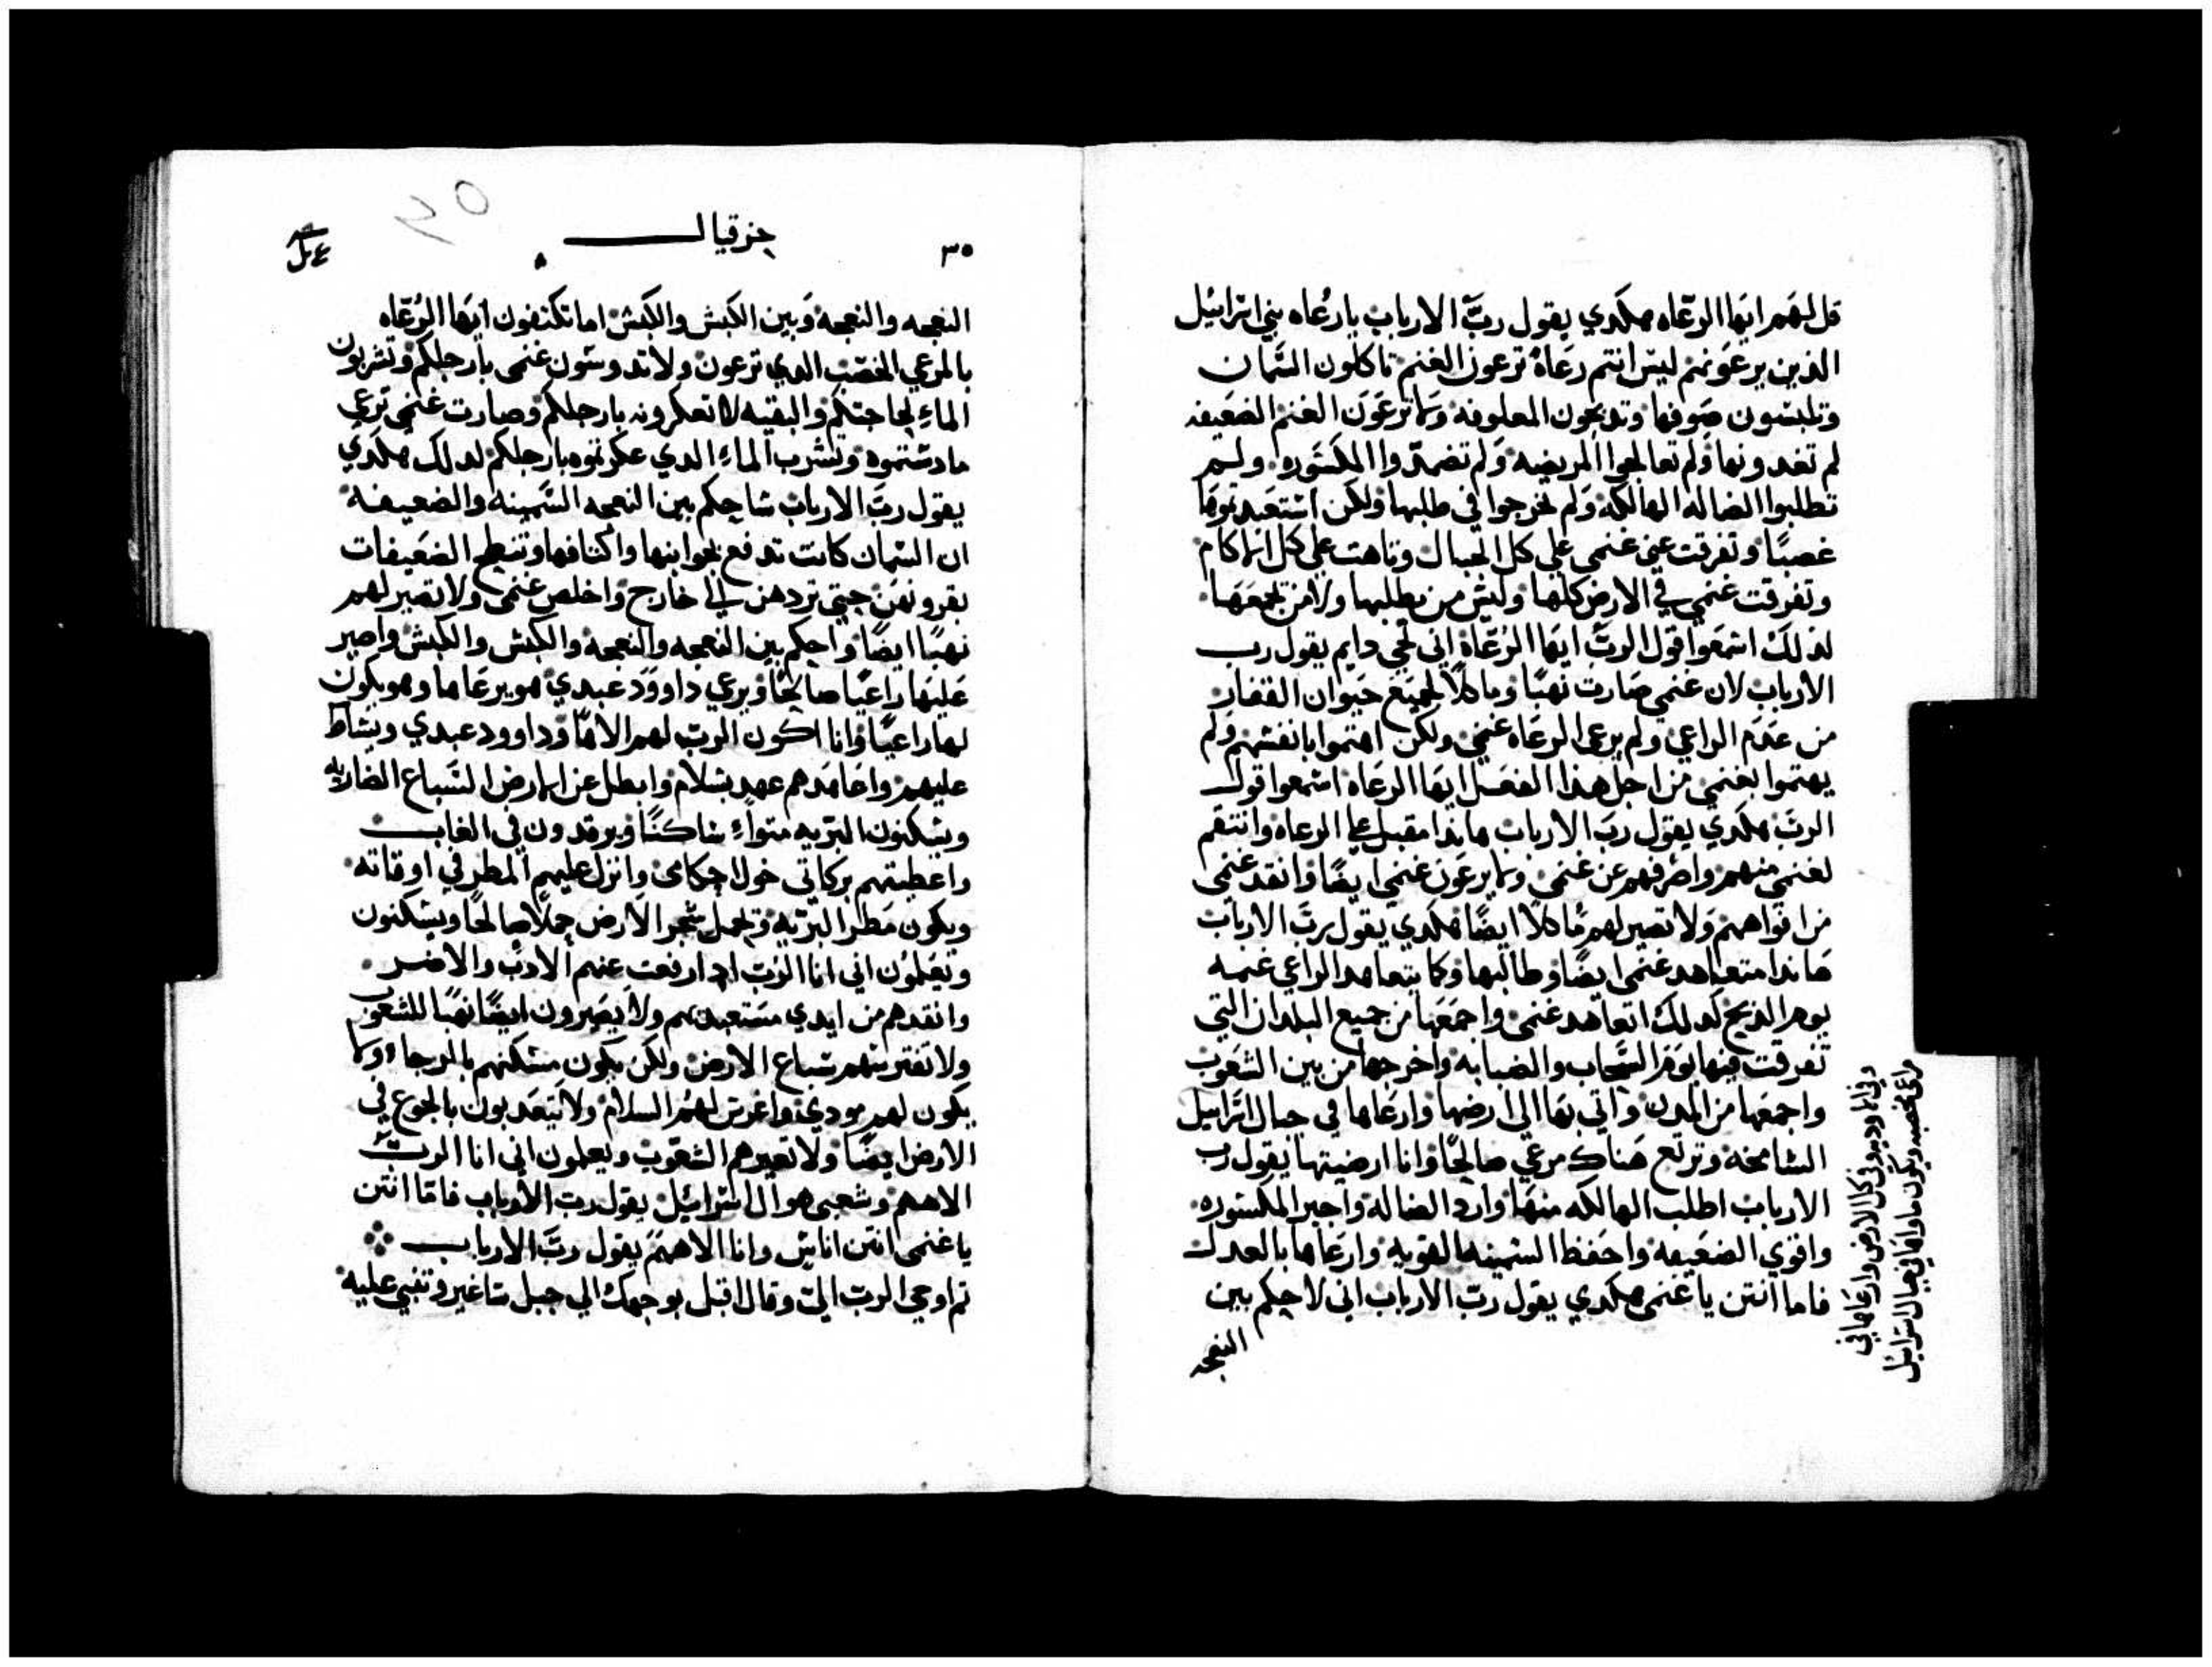 قل لهم ايها الرعاه هكدي يقول ربّ الارباب يا رعاه بني اسراييل
الذين يرعونهم ليس انتم رعاة ترعون الغنم تاكلون السمان
وتلبسون صوفها وتدبحون المعلوفه ولا ترعون الغنم الضعيفه
لم تغدونها ولم تعالجوا المريضه ولم تضمدوا المكسوره ولم
تطلبوا الضاله الهالكه ولم تخرجوا في طلبها ولكن استعبدتموها
غصبًا وتفرقت عني غنمي علي كل الجبال وتاهت علي كل الاكام
وتفرقت غنمي في الارض كلها وليس من يطلبها ولا من يجمعها
لدلك اسمعوا قول الربّ ايها الرعاة اني لحي دايم يقول رب
الارباب لان غنمي صارت نهبًا وماكلاً لجميع حيوان القفار
من عدم الراعي ولم يرعي الرعاه غنمي ولكن اهتموا بانفسهم ولم
يهتموا بغنمي من اجل هذا الفعل ايها الرعاه اسمعوا قول
الربّ هكدي يقول ربّ الارباب هاندا مقبل علي الرعاه وانتقم
لغنمي منهم واصرفهم عن غنمي ولا يرعون غنمي ايضًا وانقد غنمي
من افواههم ولا تصير لهم ماكلاً ايضًا هكدي يقول ربّ الارباب
هاندا متعاهد غنمي ايضًا وطالبها وكما يتعاهد الراعي غنمه
يوم الذبح كدلك اتعاهد غنمي واجمعها من جميع البلدان التي
تفرقت فيها يوم السحاب والضبابه واخرجها من بين الشعوب
واجمعها من المدن واتي بها الي ارضها وارعاها في جبال اسراييل
الشامخه وترتع هناك مرعي صالحًا وانا ارضيتها يقول رب
الارباب اطلب الهالكه منها وارد الضاله واجبر المكسوره
واقوي الضعيفه واحفظ السمينه القويه وارعاها بالعدل
فاما انتن يا غنمي هكدي يقول ربّ الارباب اني لاحكم بين
النعجه
وفي الاوديه وفي كل الارض وارعاها في
مراعي مخصبه ويكون ماواها في جبال اسراييل
٣٥
حزقيال
النعجه والنعجه وبين الكبش والكبش اما تكتفون ايها الرعاه
بالمرعي الخصب الدي ترعون ولا تدوسون غنمي بارجلكم وتشربون
الماء لحاجتكم والبقيه لا تعكرونه بارجلكم وصارت غنمي ترعي
ما دستموه وتشرب الماء الدي عكرتموه بارجلكم لدلك هكدي
يقول ربّ الارباب ساحكم بين النعجه السمينه والضعيفه
ان السمان كانت تدفع بجوانبها واكتافها وتنطح الضعيفات
بقرونهن حتي تردهن الي خارج واخلص غنمي ولا تصير لهم
نهبًا ايضًا واحكم بين النعجه والنعجه والكبش والكبش واصير
عليها راعيًا صالحًا ويرعي داوود عبدي هو يرعاها وهو يكون
لها راعيًا وانا اكون الربّ لهم الاهًا وداوود عبدي
عليهم واعاهدهم عهد سلام وابطل عن الارض السباع الضاريه
ويسكنون البريه ويرقدون في الغاب
واعطيتهم بركاتي حول وانزل عليهم المطر في اوقاته
ويكون مطر البريه وتحمل شجر الارض حملاً صالحًا ويسكنون
ويعلمون اني انا الربّ اد ارفعت عنهم
وانقدهم من ايدي مستعبديهم ولا يصيرون ايضًا نهبًا للشعوب
ولا تفترسهم سباع الارض ولكن يكون مسكنهم بالرجا ولا
يكون لهم مودي واغرس لهم السلام ولا يتعدبون بالجوع في
الارض ايضًا ولا تعيرهم الشعوب ويعلمون اني انا الربّ
الاههم وشعبي هو ال اسراييل يقول رب الارباب فاما انتن
يا غنمي انتن اناس وانا الاهكم يقول ربّ الارباب
تم اوحي الربّ اليّ وقال اقبل بوجهك الي جبل ساغير وتنبي عليه